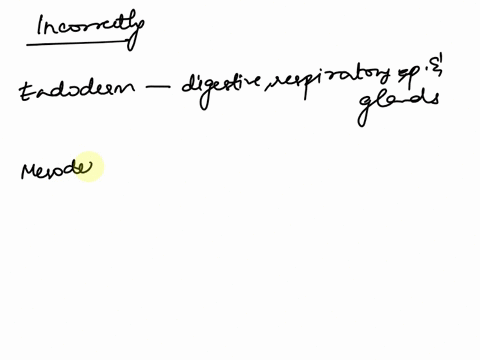 Incorrectly
Endoderm — digestive, respiratory sp. &
glands
Mesode